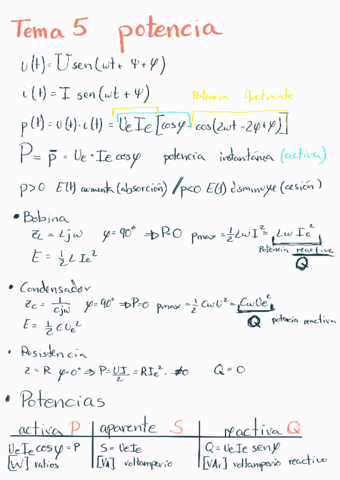 Tema 5 potencia
u(t)= U sen(wt + ψ+φ)
i(t) = I sen(wt + ψ)
Potencia fluctuante
p(t) = u(t)·i(t) = UeIe[cosφ - cos(2wt-2ψ+φ)]
P = p̄ = Ue · Ie cosφ potencia instantánea (activa)
p>0 E(t) aumenta (absorción) / p<0 E(t) disminuye (cesión)
• Bobina
ZL = Ljw φ=90° ⇒ P=0 pmax = 1/2 LwI² = LwIe²
Potencia reactiva
E = 1/2 L Ie²
Q
• Condensador
Zc = 1/Cjw φ=90° ⇒ P=0 pmax = 1/2 CwU² = CwUe²
Q potencia reactiva
E = 1/2 CUe²
• Resistencia
Z = R φ=0° ⇒ P = UI/2 = RIe² Q = 0
• Potencias
activa P aparente S reactiva Q
UeIe cosφ = P S = UeIe Q = UeIe senφ
[W] [VA] voltamperio [VAr] voltamperio reactivo